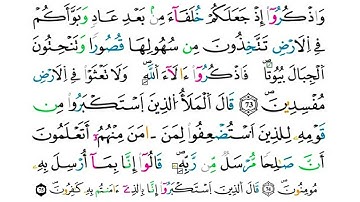 وَاذْكُرُوا إِذْ جَعَلَكُمْ خُلَفَاءَ مِنۢ بَعْدِ عَادٍ وَبَوَّأَكُمْ
فِي الَارْضِ تَتَّخِذُونَ مِن سُهُولِهَا قُصُورًا وَتَنْحِتُونَ
الْجِبَالَ بِيُوتًا فَاذْكُرُوا ءَالَاءَ اللَّهِ وَلَا تَعْثَوْا فِي الَارْضِ
مُفْسِدِينَ ٧٣ قَالَ الْمَلَأُ الَّذِينَ اسْتَكْبَرُوا مِن
قَوْمِهِ لِلَّذِينَ اسْتُضْعِفُوا لِمَنَ ـامَنَ مِنْهُمُ أَتَعْلَمُونَ
أَنَّ صَلِحًا مُّرْسَلٌ مِّن رَّبِّهِ قَالُوا إِنَّا بِمَا أُرْسِلَ بِهِ
مُومِنُونَ قَالَ الَّذِينَ اسْتَكْبَرُوا إِنَّا بِالَّذِي ءَامَنتُم بِهِ كَفِرُونَ